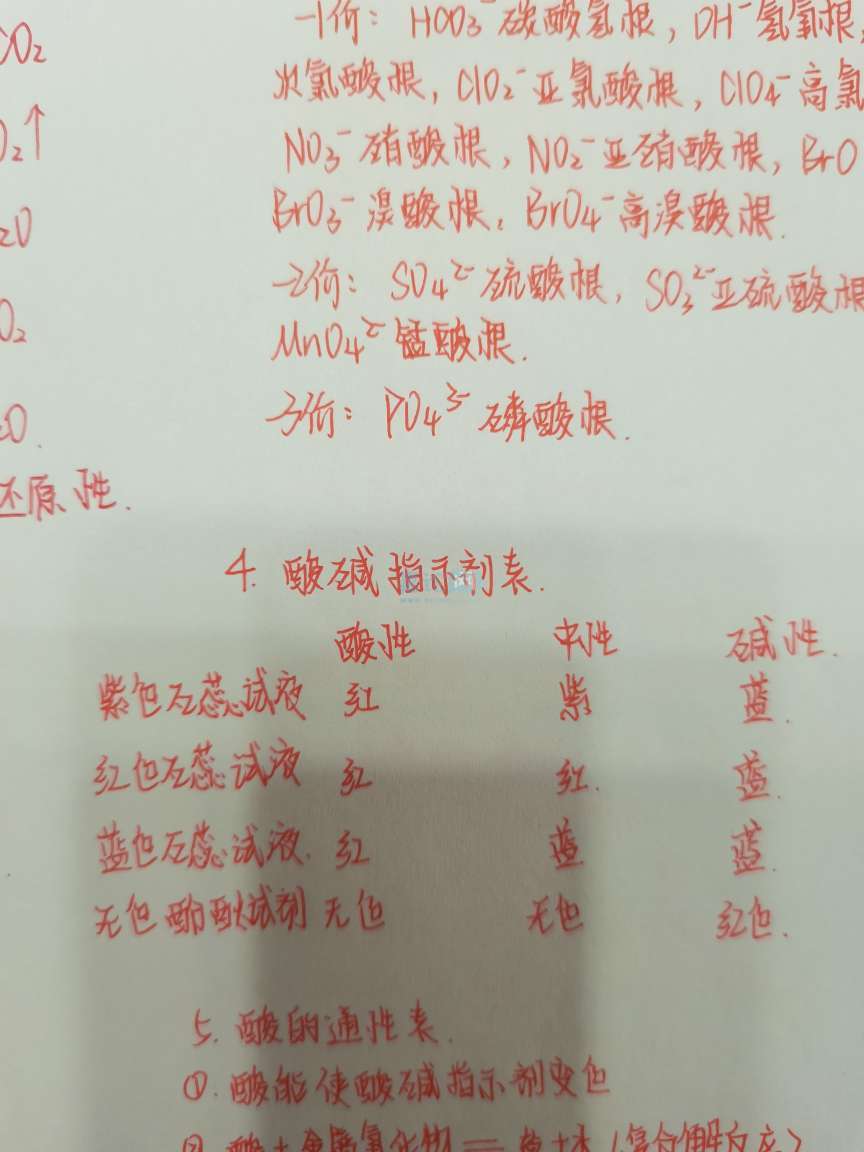 CO₂
-1价：HCO₃⁻碳酸氢根，OH⁻氢氧根，
O₂↑
次氯酸根，ClO₂⁻亚氯酸根，ClO₄⁻高氯
NO₃⁻硝酸根，NO₂⁻亚硝酸根，BrO
₂O
BrO₃⁻溴酸根，BrO₄⁻高溴酸根.
-2价：SO₄²⁻硫酸根，SO₃²⁻亚硫酸根
O₂
MnO₄²⁻锰酸根.
₂O.
-3价：PO₄³⁻磷酸根.
还原性.
4. 酸碱指示剂表.
酸性 中性 碱性.
紫色石蕊试液 红 紫 蓝.
红色石蕊试液 红 红. 蓝.
蓝色石蕊试液. 红 蓝 蓝.
无色酚酞试剂 无色 无色 红色.
5. 酸的通性表.
①. 酸能使酸碱指示剂变色
②. 酸+金属氧化物══盐+水（复分解反应）